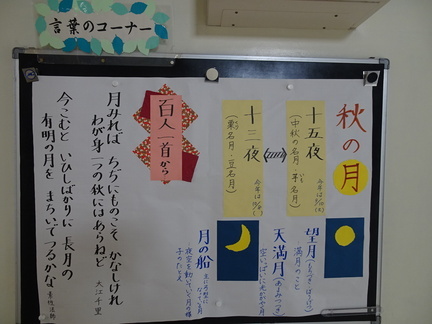 言葉のコーナー
秋の月
十五夜
(中秋の名月・芋名月)
十三夜
(栗名月・豆名月)
望月
満月のこと
天満月
月の船
夜空を動いていく月の様
子のたとえ
百人一首から
月みれば ちぢにものこそ かなしけれ
わが身一つの秋にはあらねど
大江千里
今こむと いひしばかりに 長月の
有明の月を まちいでつるかな
素性法師